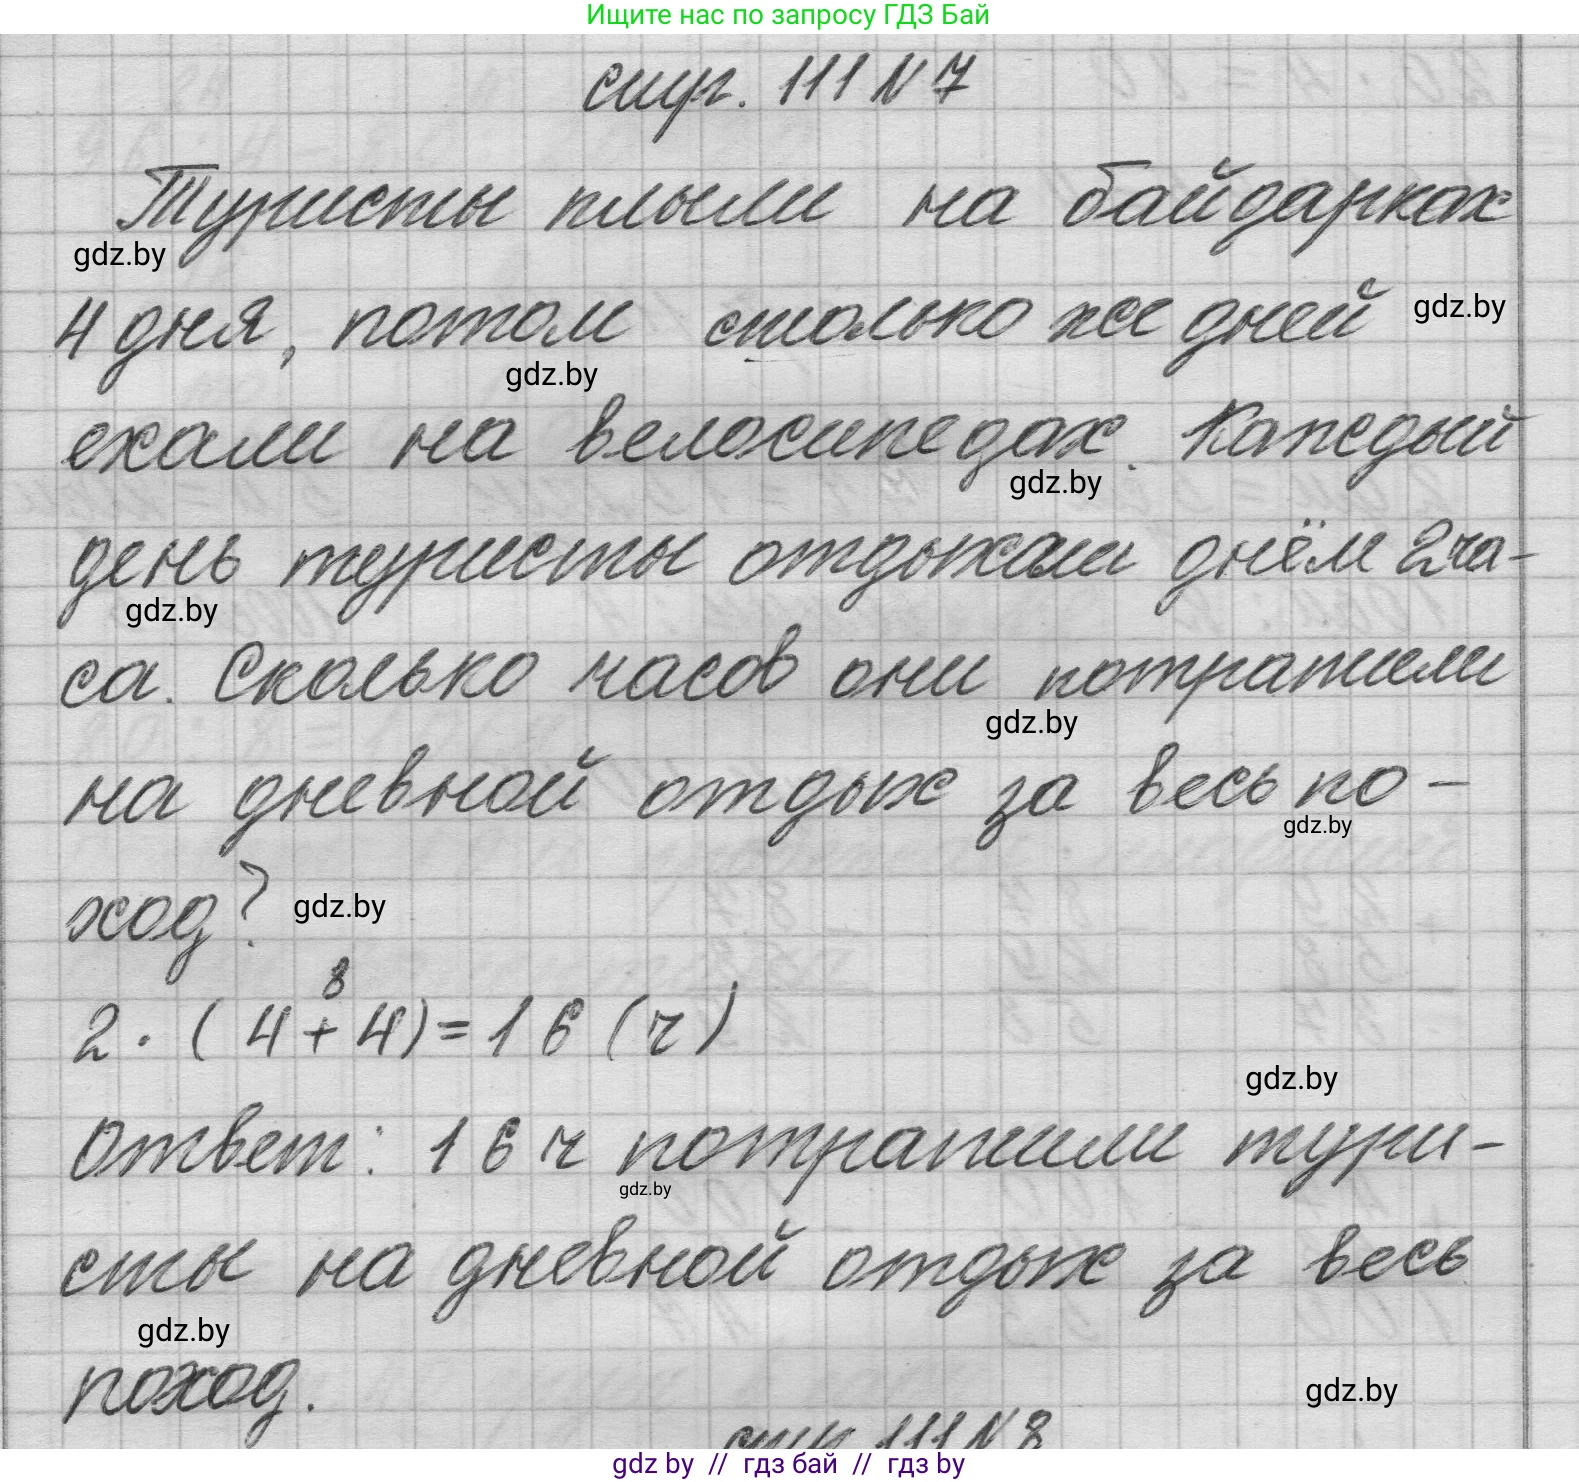 Ищите нас по запросу ГДЗ Бай
стр. 111 N 7
Туристы плыли на байдарках
gdz.by
4 дня, потом столько же дней gdz.by
gdz.by
ехали на велосипедах. Каждый
gdz.by
день туристы отдыхали днём 2 ча-
gdz.by
са. Сколько часов они потратили
gdz.by
на дневной отдых за весь по-
gdz.by
ход? gdz.by
8
2 · ( 4 + 4) = 16 (ч)
gdz.by
Ответ: 16 ч потратили тури-
gdz.by
сты на дневной отдых за весь
gdz.by
поход.
gdz.by
стр 111 N 8
gdz by // гдз бай // гдз by